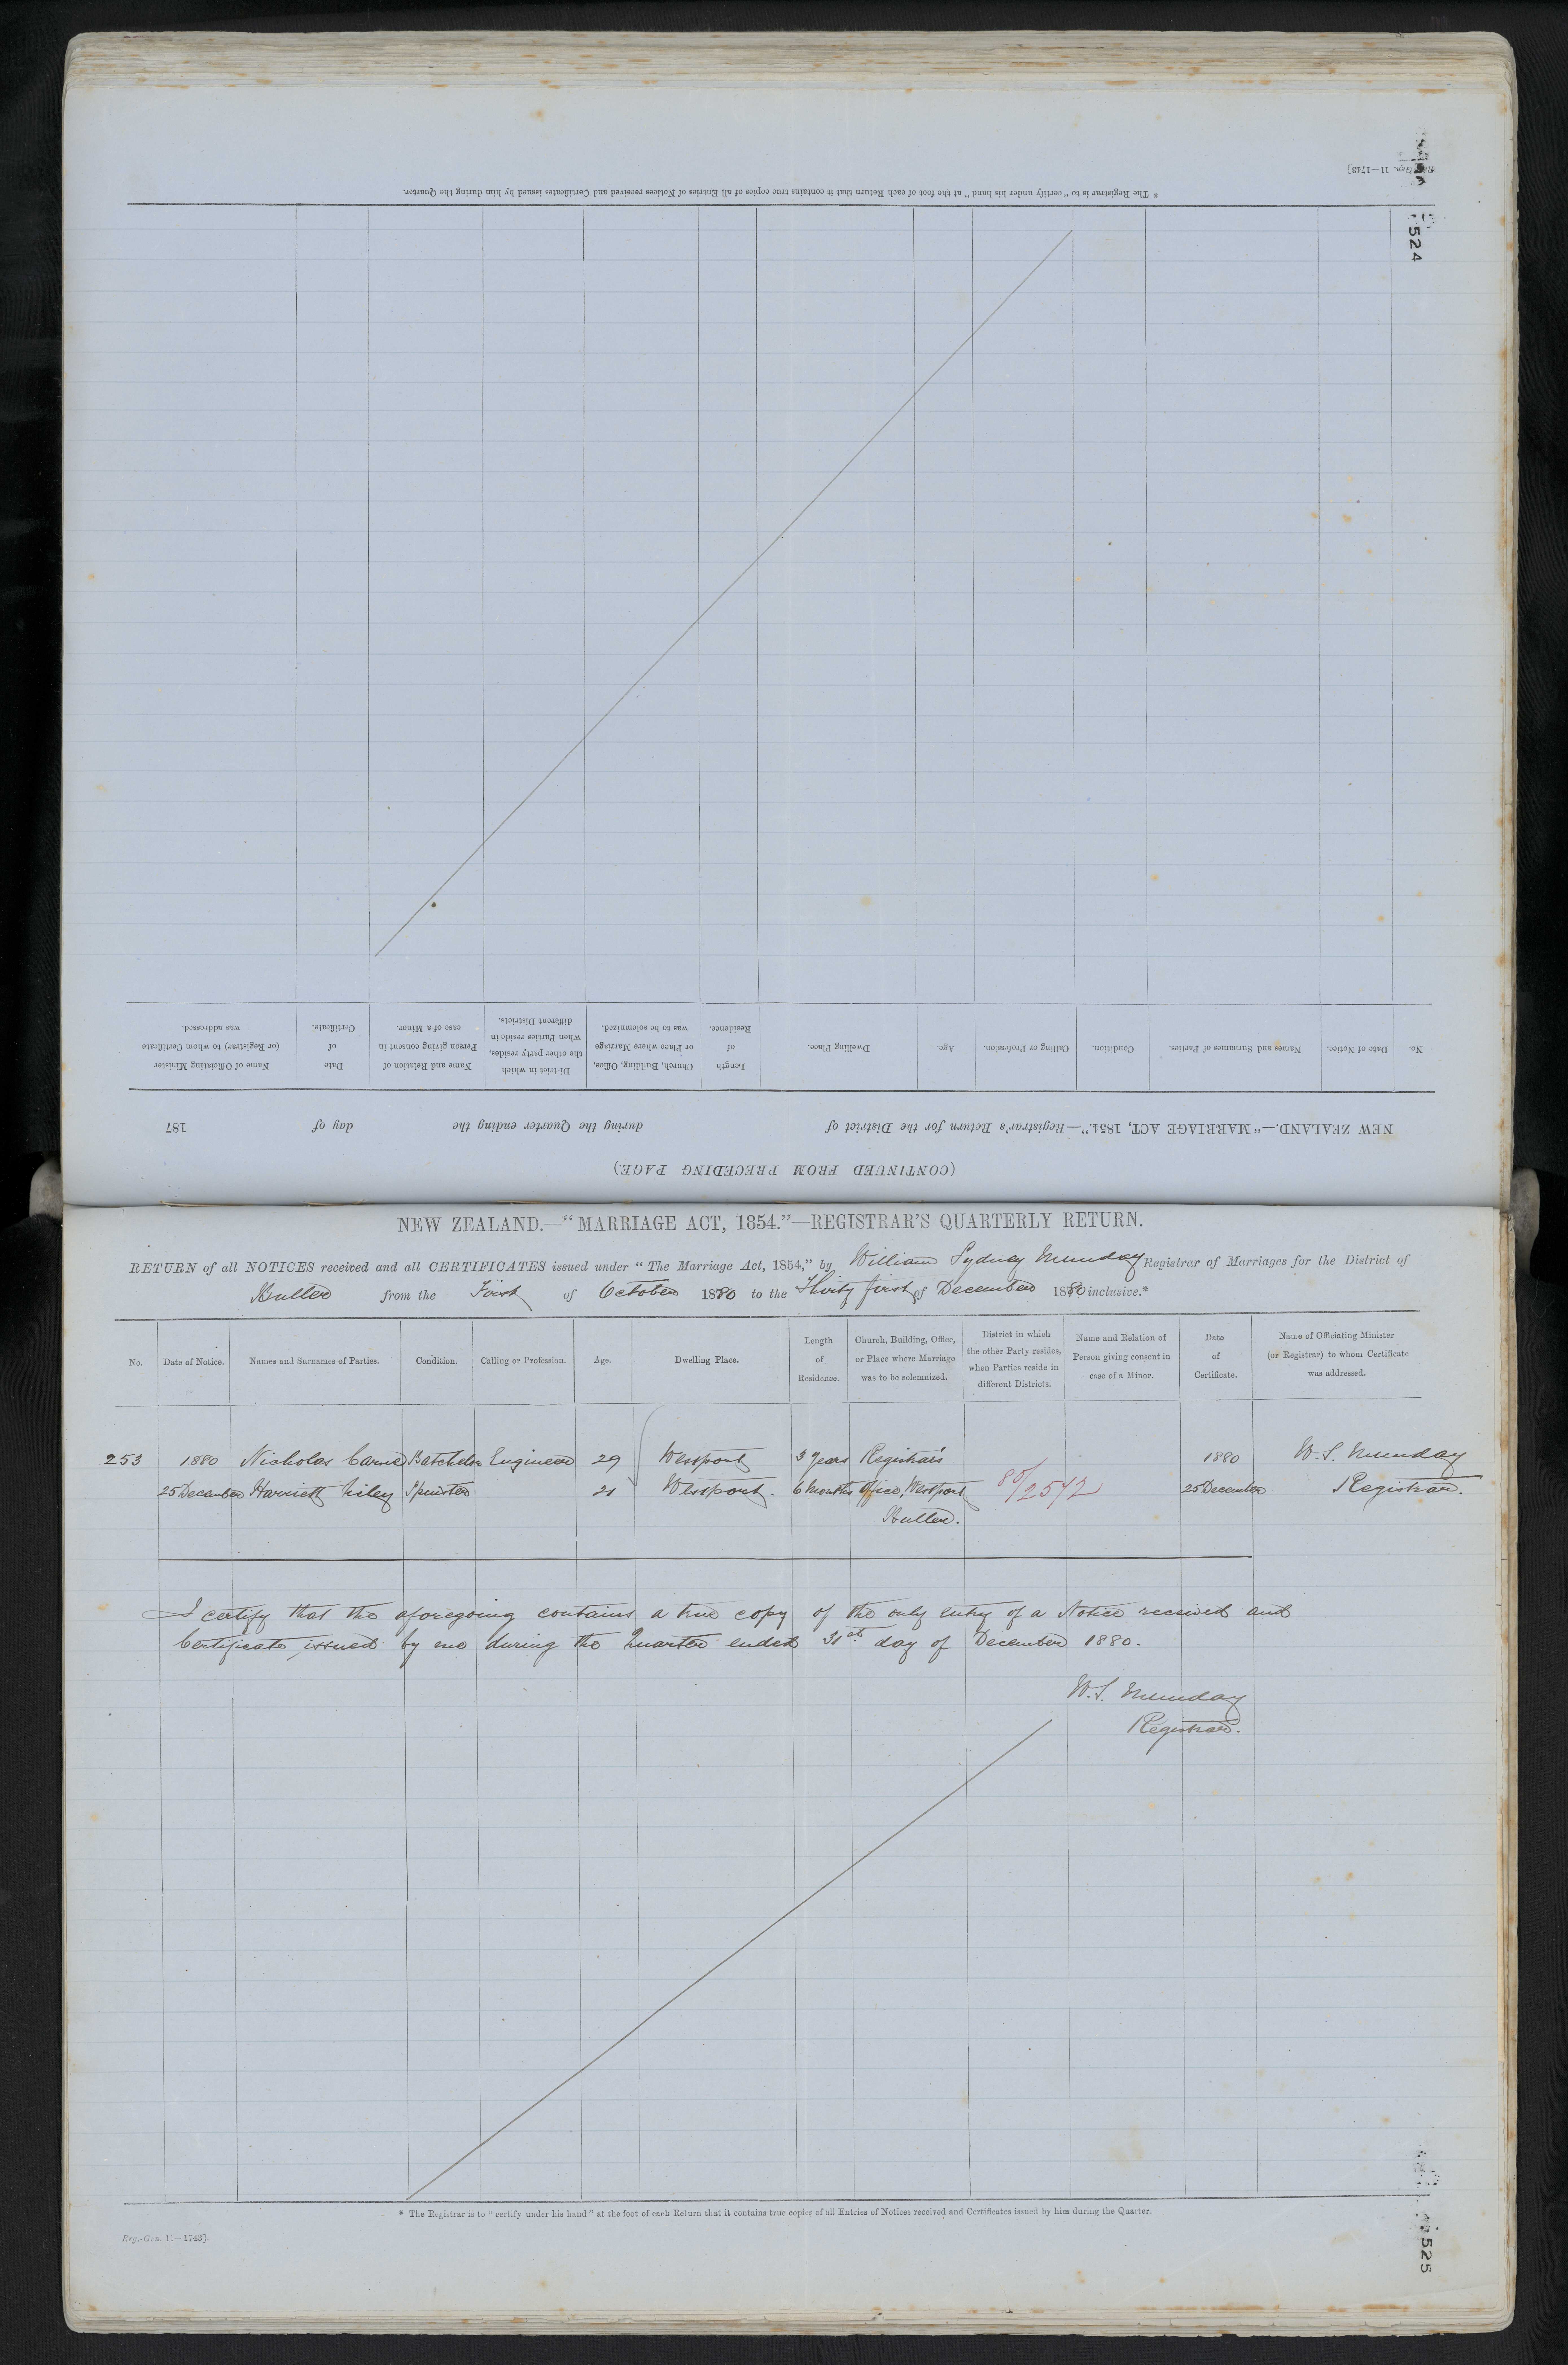 Reg.-Gen. 11—1743]
524
* The Registrar is to "certify under his hand" at the foot of each Return that it contains true copies of all Entries of Notices received and Certificates issued by him during the Quarter.
(CONTINUED FROM PRECEDING PAGE.)
NEW ZEALAND.—"MARRIAGE ACT, 1854."—Registrar's Return for the District of during the Quarter ending the day of 187
No. Date of Notice. Names and Surnames of Parties. Condition. Calling or Profession. Age. Dwelling Place. Length of Residence. Church, Building, Office, or Place where Marriage was to be solemnized. District in which the other party resides, when Parties reside in different Districts. Name and Relation of Person giving consent in case of a Minor. Date of Certificate. Name of Officiating Minister (or Registrar) to whom Certificate was addressed.
NEW ZEALAND.—"MARRIAGE ACT, 1854."—REGISTRAR'S QUARTERLY RETURN.
RETURN of all NOTICES received and all CERTIFICATES issued under "The Marriage Act, 1854," by William Sydney Munday Registrar of Marriages for the District of
Buller from the First of October 1880 to the Thirty first of December 1880 inclusive.*
No. Date of Notice. Names and Surnames of Parties. Condition. Calling or Profession. Age. Dwelling Place. Length of Residence. Church, Building, Office, or Place where Marriage was to be solemnized. District in which the other Party resides, when Parties reside in different Districts. Name and Relation of Person giving consent in case of a Minor. Date of Certificate. Name of Officiating Minister (or Registrar) to whom Certificate was addressed.
253 1880 Nicholas Carne Batchelor Engineer 29 Westport 3 Years Registrar's 1880 W. S. Munday
25 December Harriett Tiley Spinster 21 Westport. 6 Months Office, Westport 80/2572 25 December Registrar.
Buller.
I certify that the aforegoing contains a true copy of the only entry of a Notice received and
Certificate issued by me during the Quarter ended 31st day of December 1880.
W. S. Munday
Registrar.
* The Registrar is to "certify under his hand" at the foot of each Return that it contains true copies of all Entries of Notices received and Certificates issued by him during the Quarter.
Reg.-Gen. 11—1743]
525